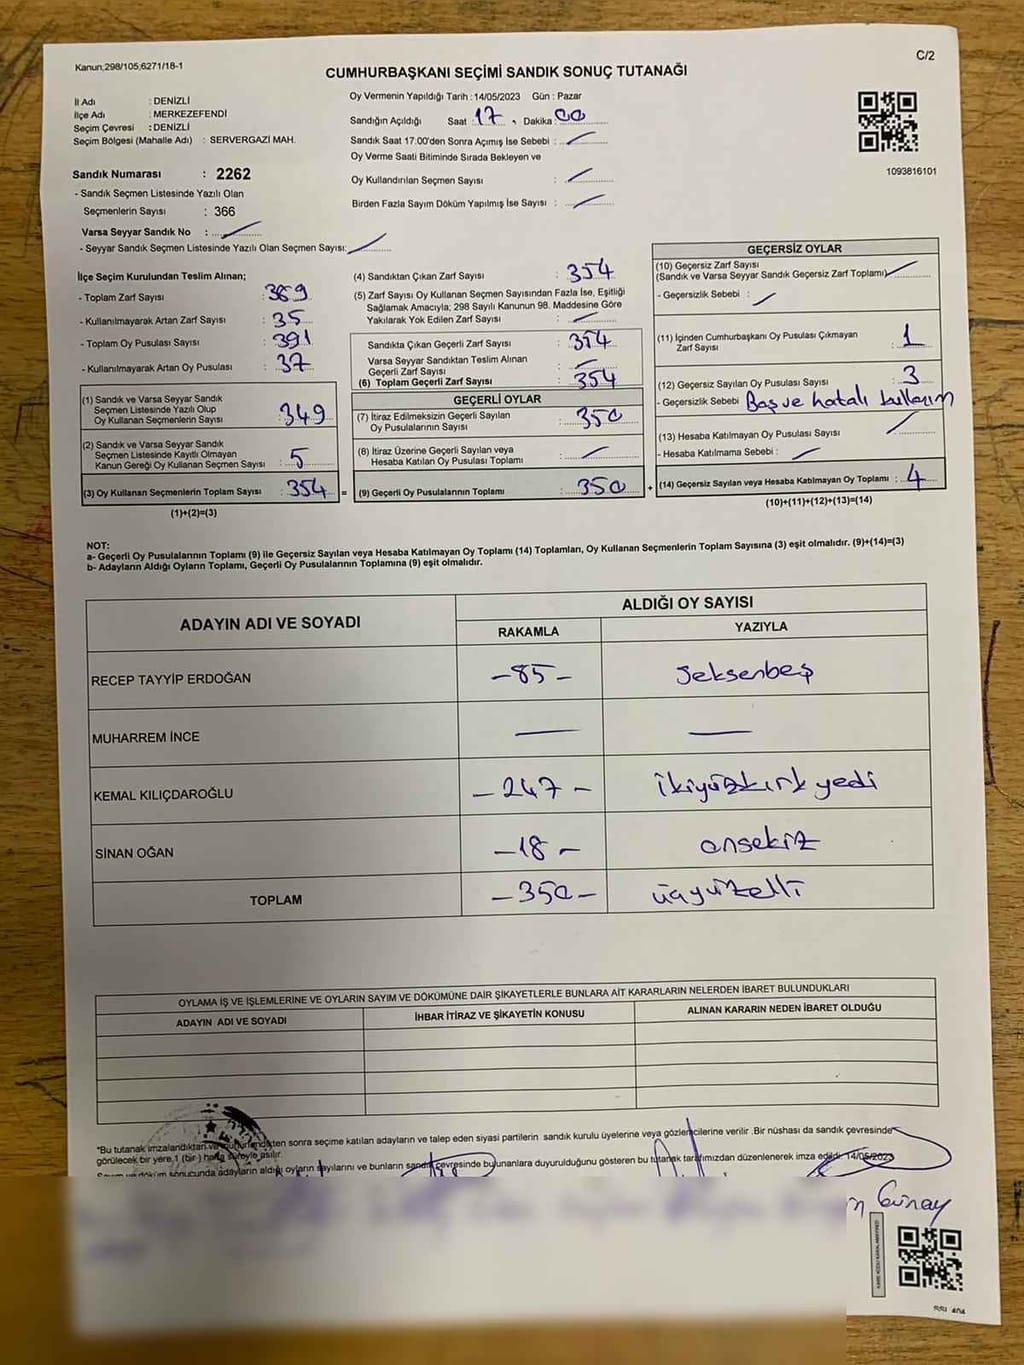 Kanun;298/105;6271/18-1
C/2
CUMHURBAŞKANI SEÇİMİ SANDIK SONUÇ TUTANAĞI
İl Adı : DENİZLİ
İlçe Adı : MERKEZEFENDİ
Seçim Çevresi : DENİZLİ
Seçim Bölgesi (Mahalle Adı) : SERVERGAZİ MAH.
Oy Vermenin Yapıldığı Tarih : 14/05/2023 Gün : Pazar
Sandığın Açıldığı Saat : 17 , Dakika : 00
Sandık Saat 17:00'den Sonra Açımış İse Sebebi :
Oy Verme Saati Bitiminde Sırada Bekleyen ve
Oy Kullandırılan Seçmen Sayısı :
Birden Fazla Sayım Döküm Yapılmış İse Sayısı :
1093816101
Sandık Numarası : 2262
- Sandık Seçmen Listesinde Yazılı Olan
Seçmenlerin Sayısı : 366
Varsa Seyyar Sandık No :
- Seyyar Sandık Seçmen Listesinde Yazılı Olan Seçmen Sayısı:
İlçe Seçim Kurulundan Teslim Alınan;
- Toplam Zarf Sayısı : 389
- Kullanılmayarak Artan Zarf Sayısı : 35
- Toplam Oy Pusulası Sayısı : 391
- Kullanılmayarak Artan Oy Pusulası : 37
(1) Sandık ve Varsa Seyyar Sandık
Seçmen Listesinde Yazılı Olup
Oy Kullanan Seçmenlerin Sayısı : 349
(2) Sandık ve Varsa Seyyar Sandık
Seçmen Listesinde Kayıtlı Olmayan
Kanun Gereği Oy Kullanan Seçmen Sayısı : 5
(3) Oy Kullanan Seçmenlerin Toplam Sayısı : 354 =
(1)+(2)=(3)
(4) Sandıktan Çıkan Zarf Sayısı : 354
(5) Zarf Sayısı Oy Kullanan Seçmen Sayısından Fazla İse, Eşitliği
Sağlamak Amacıyla; 298 Sayılı Kanunun 98. Maddesine Göre
Yakılarak Yok Edilen Zarf Sayısı :
Sandıkta Çıkan Geçerli Zarf Sayısı : 354
Varsa Seyyar Sandıktan Teslim Alınan
Geçerli Zarf Sayısı :
(6) Toplam Geçerli Zarf Sayısı : 354
GEÇERLİ OYLAR
(7) İtiraz Edilmeksizin Geçerli Sayılan
Oy Pusulalarının Sayısı : 350
(8) İtiraz Üzerine Geçerli Sayılan veya
Hesaba Katılan Oy Pusulası Toplamı :
(9) Geçerli Oy Pusulalarının Toplamı : 350 +
GEÇERSİZ OYLAR
(10) Geçersiz Zarf Sayısı
(Sandık ve Varsa Seyyar Sandık Geçersiz Zarf Toplamı)
- Geçersizlik Sebebi :
(11) İçinden Cumhurbaşkanı Oy Pusulası Çıkmayan
Zarf Sayısı : 1
(12) Geçersiz Sayılan Oy Pusulası Sayısı : 3
- Geçersizlik Sebebi : Boş ve hatalı kullanım
(13) Hesaba Katılmayan Oy Pusulası Sayısı :
- Hesaba Katılmama Sebebi :
(14) Geçersiz Sayılan veya Hesaba Katılmayan Oy Toplamı : 4
(10)+(11)+(12)+(13)=(14)
NOT:
a- Geçerli Oy Pusulalarının Toplamı (9) ile Geçersiz Sayılan veya Hesaba Katılmayan Oy Toplamı (14) Toplamları, Oy Kullanan Seçmenlerin Toplam Sayısına (3) eşit olmalıdır. (9)+(14)=(3)
b- Adayların Aldığı Oyların Toplamı, Geçerli Oy Pusulalarının Toplamına (9) eşit olmalıdır.
ADAYIN ADI VE SOYADI
ALDIĞI OY SAYISI
RAKAMLA YAZIYLA
RECEP TAYYİP ERDOĞAN -85- Seksenbeş
MUHARREM İNCE — —
KEMAL KILIÇDAROĞLU -247- ikiyüzkırkyedi
SİNAN OĞAN -18- onsekiz
TOPLAM -350- üçyüzelli
OYLAMA İŞ VE İŞLEMLERİNE VE OYLARIN SAYIM VE DÖKÜMÜNE DAİR ŞİKAYETLERLE BUNLARA AİT KARARLARIN NELERDEN İBARET BULUNDUKLARI
ADAYIN ADI VE SOYADI İHBAR İTİRAZ VE ŞİKAYETİN KONUSU ALINAN KARARIN NEDEN İBARET OLDUĞU
*Bu tutanak imzalandıktan ve sonra seçime katılan adayların ve talep eden siyasi partilerin sandık kurulu üyelerine veya gözlemcilerine verilir .Bir nüshası da sandık çevresinde
görülecek bir yere 1 (bir) hafta süreyle asılır.
Sayım ve döküm sonucunda adayların aldığı oyların sayılarını ve bunların sandık çevresinde bulunanlara duyurulduğunu gösteren bu tutanak tarafımızdan düzenlenerek imza edildi. 14/05/2023
Günay